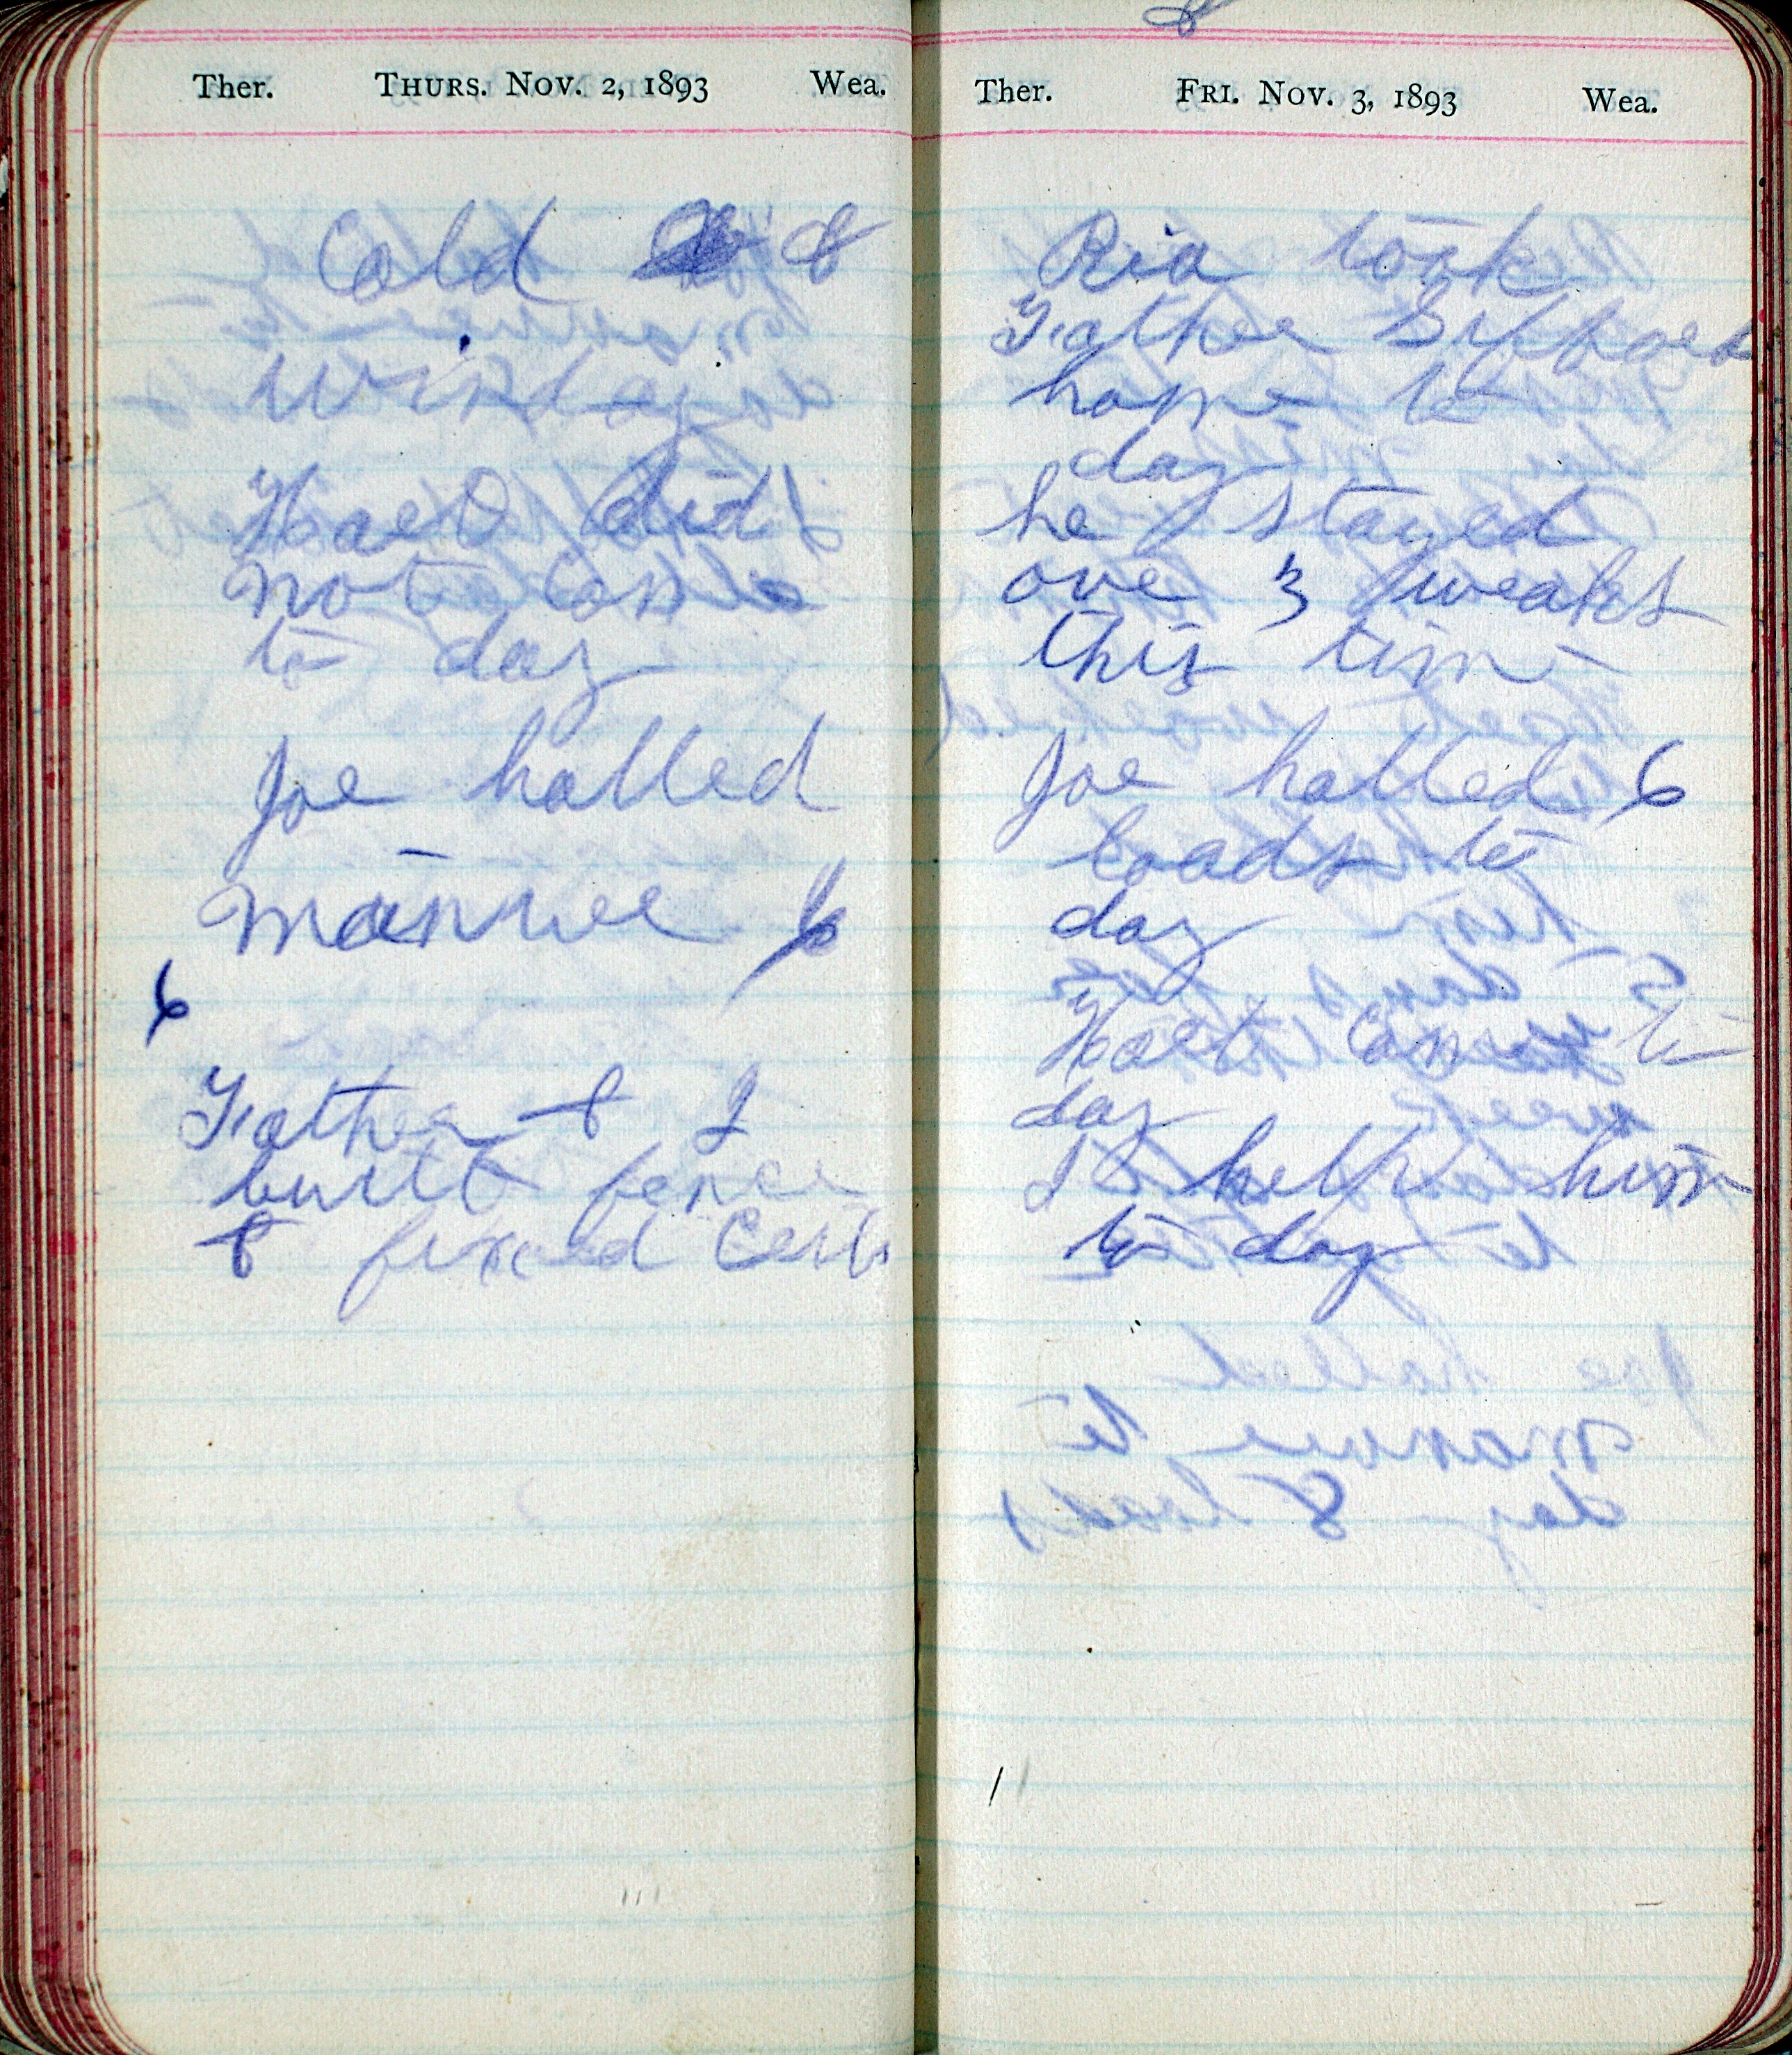 Ther. THURS. NOV. 2, 1893 Wea.
Cold &
winday
Hart did
not Come
to day
Joe halled
manure
6
Father & I
built fence
& fixed
Ther. FRI. NOV. 3, 1893 Wea.
Ria took
Father
home to
day
he stayed
ove 3 weaks
this tim
Joe halled 6
loads to
day
Hart Come to
day
I help him
to day